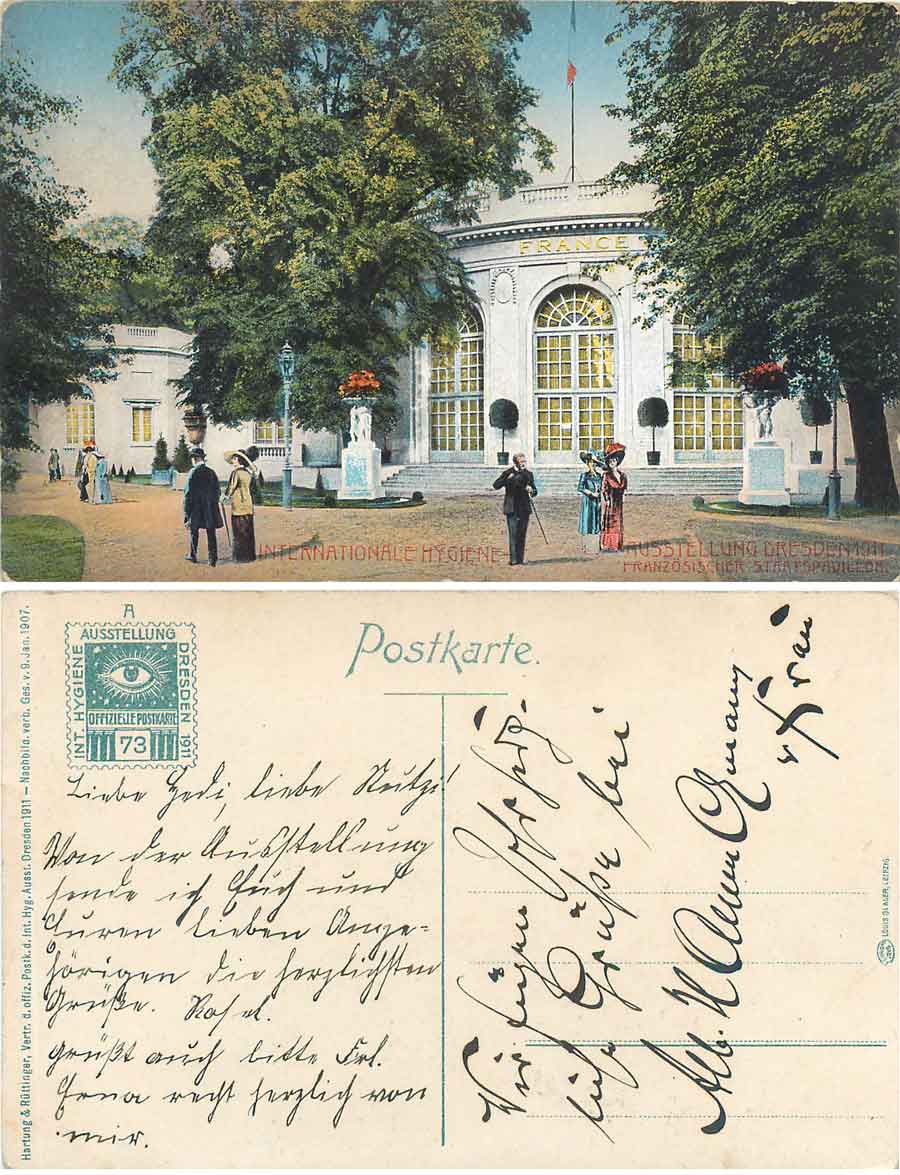 FRANCE
INTERNATIONALE HYGIENE- AUSSTELLUNG DRESDEN 1911
FRANZÖSISCHER STAATSPAVILLON.
A
AUSSTELLUNG
INT. HYGIENE
DRESDEN 1911
OFFIZIELLE POSTKARTE
73
Postkarte.
Hartung & Rüttinger, Vertr. d. offiz. Postk. d. Int. Hyg. Ausst. Dresden 1911 — Nachbild. verb. Ges. v. 9. Jan. 1907.
Liebe Hedi, liebe Mutzi!
Von der Ausstellung
sende ich Euch und
Euren lieben Ange-
hörigen die herzlichsten
Grüße. Rosel.
Grüßt auch bitte Frl.
Erna recht herzlich von
mir.
Wir fügen
Grüße bei
Alb.
u Frau
LOUIS GLASER, LEIPZIG.